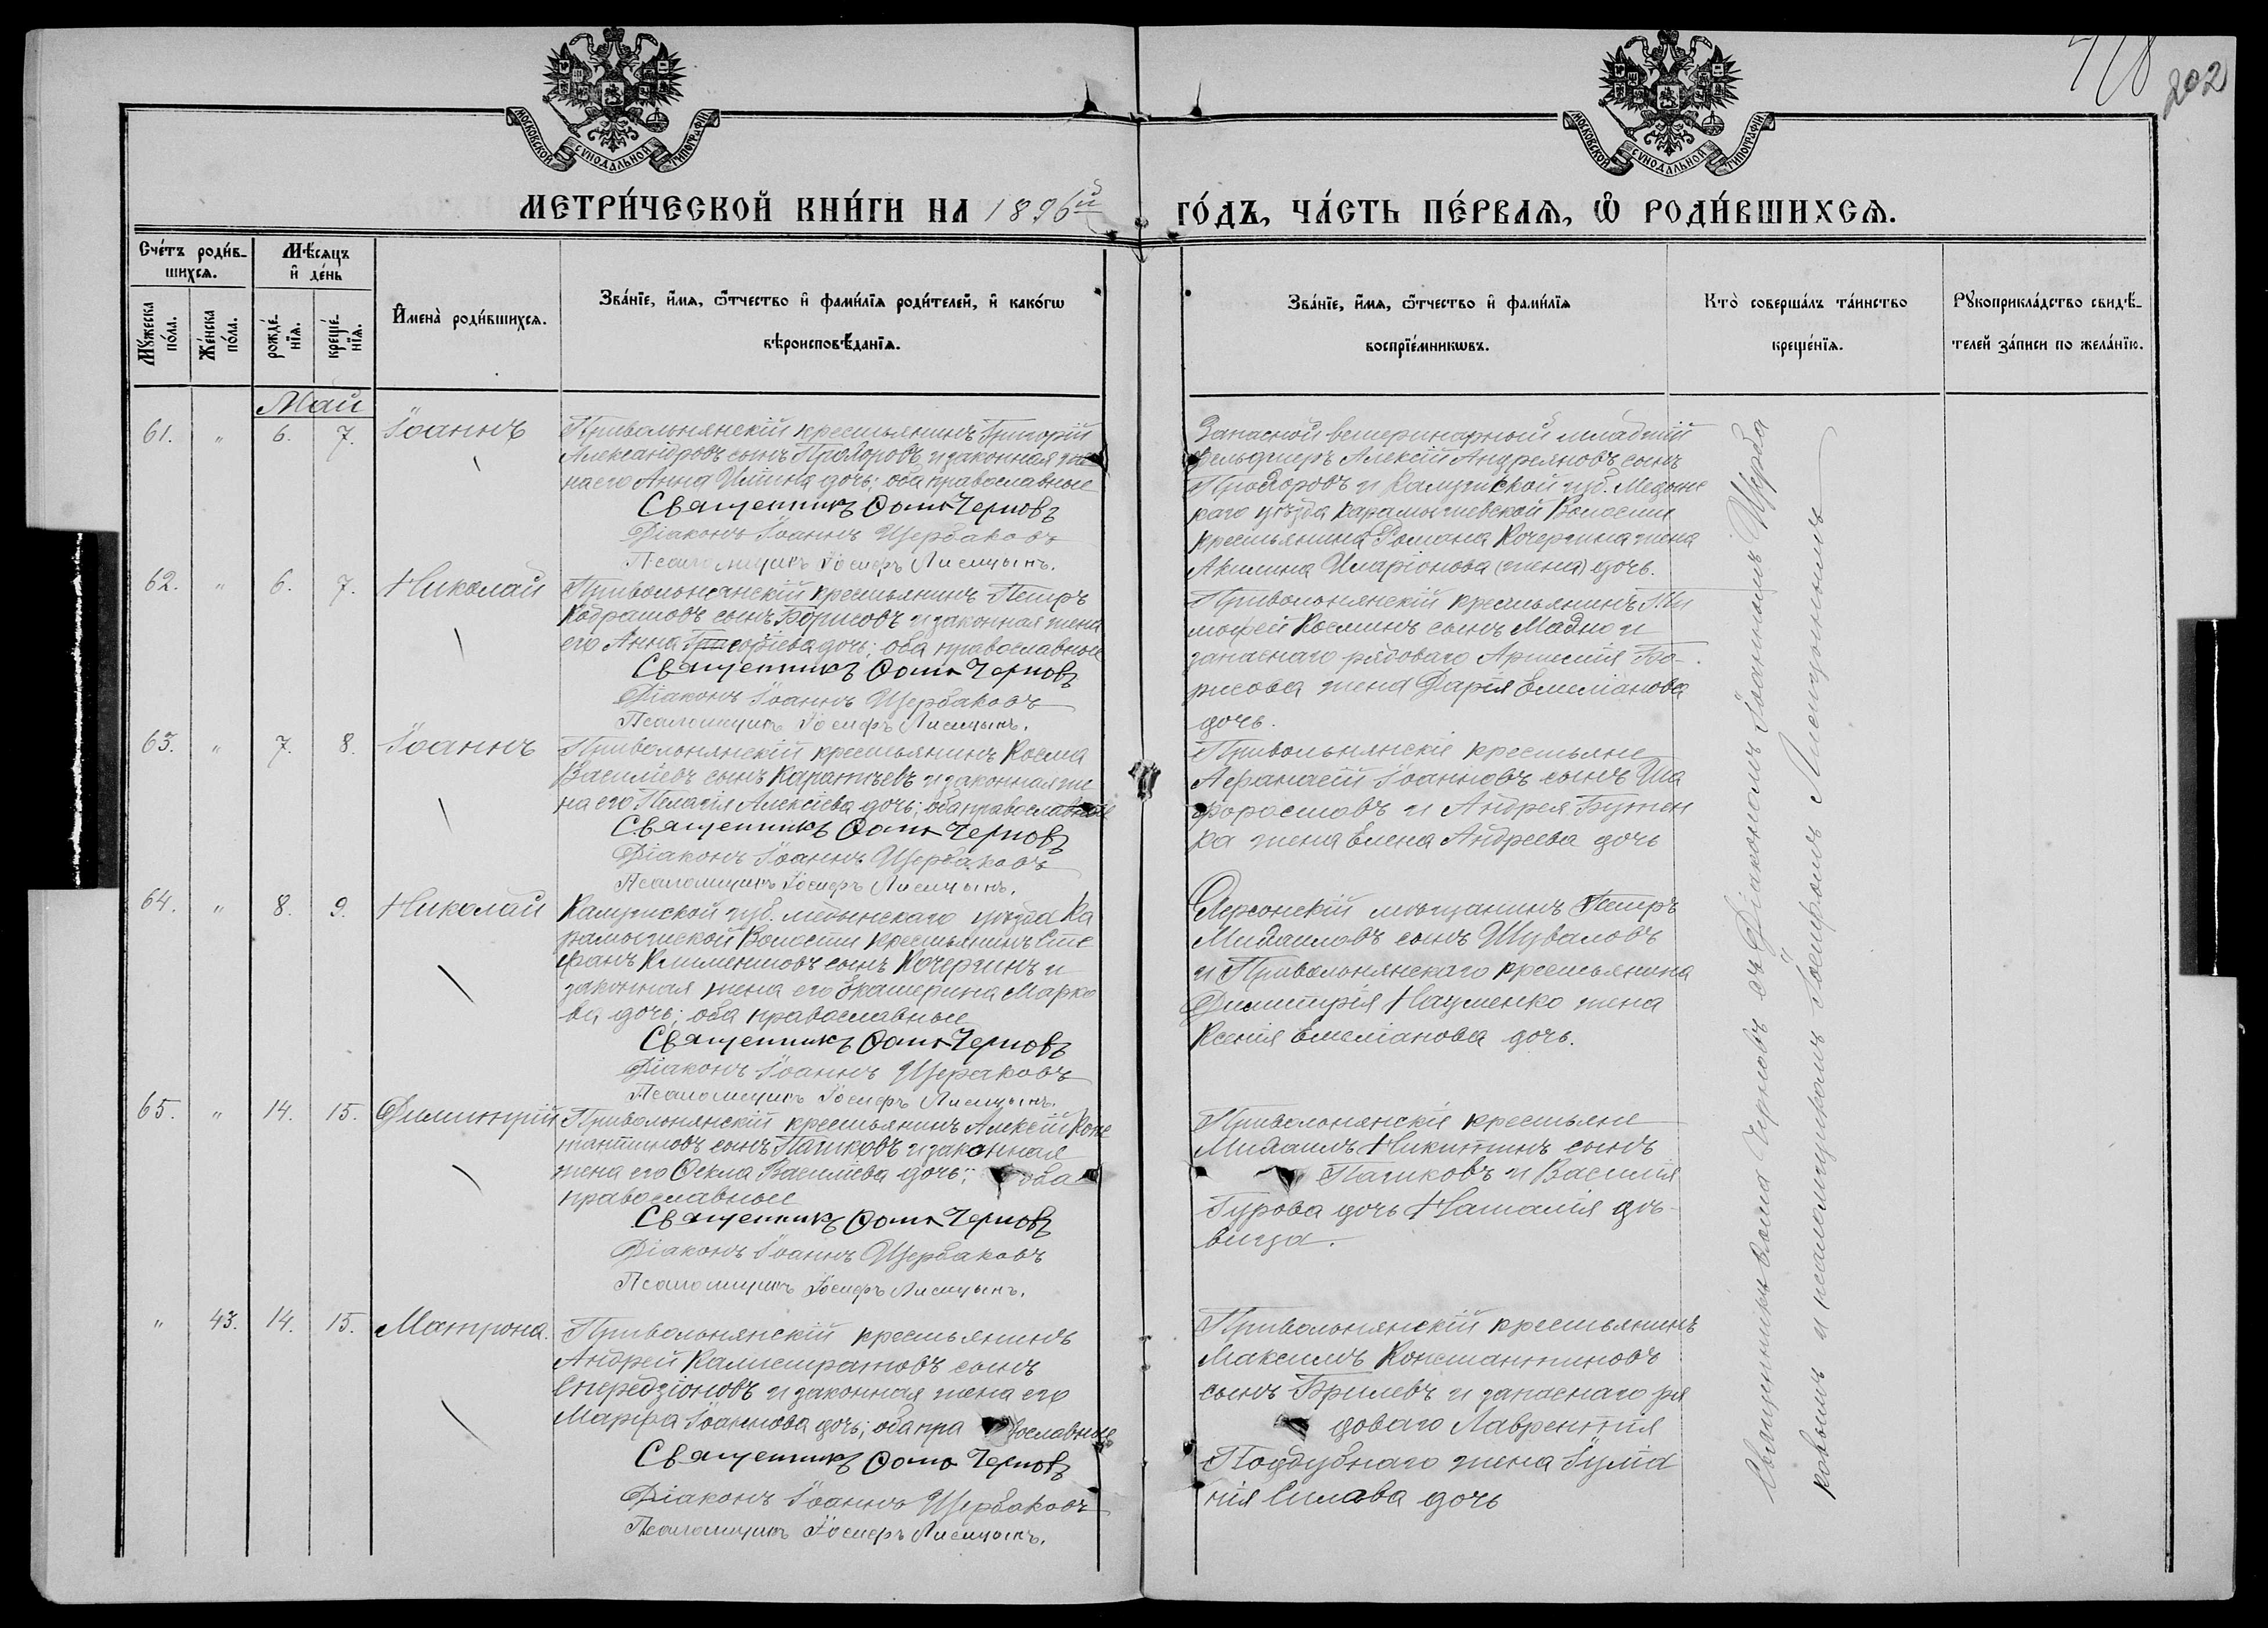 418 202
МОСКОВСКОЙ СѴНОДАЛЬНОЙ ТИПОГРАФІИ
МОСКОВСКОЙ СѴНОДАЛЬНОЙ ТИПОГРАФІИ
МЕТРИ́ЧЕСКОЙ КНИ́ГИ НА 1896й ГО́ДЪ, ЧА́СТЬ ПЕ́РВАЯ, Ѡ РОДИ́ВШИХСЯ.
Сче́тъ роди́в-
шихся.
Мꙋ́жеска
по́ла.
Же́нска
по́ла.
Мѣ́сяцъ
и де́нь
рожде́-
нїя.
креще́-
нїя.
Имена̀ роди́вшихся.
Зва́нїе, и́мя, ѻ́тчество и фами́лїя роди́телей, и како́гѡ
вѣроисповѣ́данїя.
Зва́нїе, и́мя, ѻ́тчество и фами́лїя
воспрїе́мникѡвъ.
Кто̀ соверша́лъ та́инство
креще́нїя.
Рꙋкоприкла́дство свидѣ́-
телей за́писи по жела́нїю.
Май
61. " 6. 7. Іоаннъ
Привольнянскій крестьянинъ Григорій
Александровъ сынъ Прохоровъ и законная же
на его Анна Илiина дочь; оба православные
Священникъ Ѳома Черновъ
Діаконъ Іоаннъ Щербаковъ
Псаломщикъ Іосифъ Лисицынъ.
Запасной ветеринарный младшій
фельдшеръ Алексій Андреяновъ сынъ
Прохоровъ и Калужской губ. Медынс
каго уѣзда Карамышевской Волости
крестьянина Романа Кочергина жена
Акилина Иларіонова (жена) дочь.
62. " 6. 7. Николай
Привольнянскій крестьянинъ Петръ
Кодратовъ сынъ Борисовъ и законная жена
его Анна Григоріева дочь; оба православные
Священникъ Ѳома Черновъ
Діаконъ Іоаннъ Щербаковъ
Псаломщикъ Іосифъ Лисицынъ.
Привольнянскій крестьянинъ Ти
мофей Косминъ сынъ Махно и
запаснаго рядоваго Артемія Бо-
рисова жена Дарія Емеліанова
дочь.
63. " 7. 8. Іоаннъ
Привольнянскій крестьянинъ Косма
Василіевъ сынъ и законная же
на его Пелагія Алексіева дочь; оба православные
Священникъ Ѳома Черновъ
Діаконъ Іоаннъ Щербаковъ
Псаломщикъ Іосифъ Лисицынъ.
Привольнянскіе крестьяне
Афанасій Іоанновъ сынъ Ша
форостовъ и Андрея Бутен
ка жена Елена Андреева дочь
64. " 8. 9. Николай
Калужской губ. медынскаго уѣзда Ка
рамышской Волости крестьянинъ Сте
фанъ Климентовъ сынъ Кочергинъ и
законная жена его Екатерина Марко
ва дочь; оба православные
Священникъ Ѳома Черновъ
Діаконъ Іоаннъ Щераковъ
Псаломщикъ Іосифъ Лисицынъ.
Херсонскій мѣщанинъ Петръ
Михаиловъ сынъ Шуваловъ
и Привольнянскаго крестьянина
Димитрія Науменко жена
Ксенія Емеліанова дочь.
65. " 14. 15. Димитрій
Привольнянскій крестьянинъ Алексій Конс
тантиновъ сынъ Пашковъ и законная
жена его Ѳекла Василіева дочь; оба
православные
Священникъ Ѳома Черновъ
Діаконъ Іоаннъ Щербаковъ
Псаломщикъ Іосифъ Лисицынъ.
Привольнянскіе крестьяне
Михаилъ Никитинъ сынъ
Пашковъ и Василія
Гурова дочь Наталія дѣ-
вица.
" 43. 14. 15. Матрона.
Привольнянскій крестьянинъ
Андрей Калистратовъ сынъ
Спередзіоновъ и законная жена его
Марфа Іоаннова дочь; оба пра вославные
Священникъ Ѳома Черновъ
Діаконъ Іоаннъ Щербаковъ
Псаломщикъ Іосифъ Лисицынъ.
Привольнянскій крестьянинъ
Максимъ Константиновъ
сынъ Брилевъ и запаснаго ря
доваго Лаврентія
Поддубнаго жена Іуліа
нія Силава дочь
Священникъ Ѳома Черновъ съ Діакономъ Іоанномъ Щерба
ковымъ и псаломщикомъ Іосифомъ Лисицынымъ